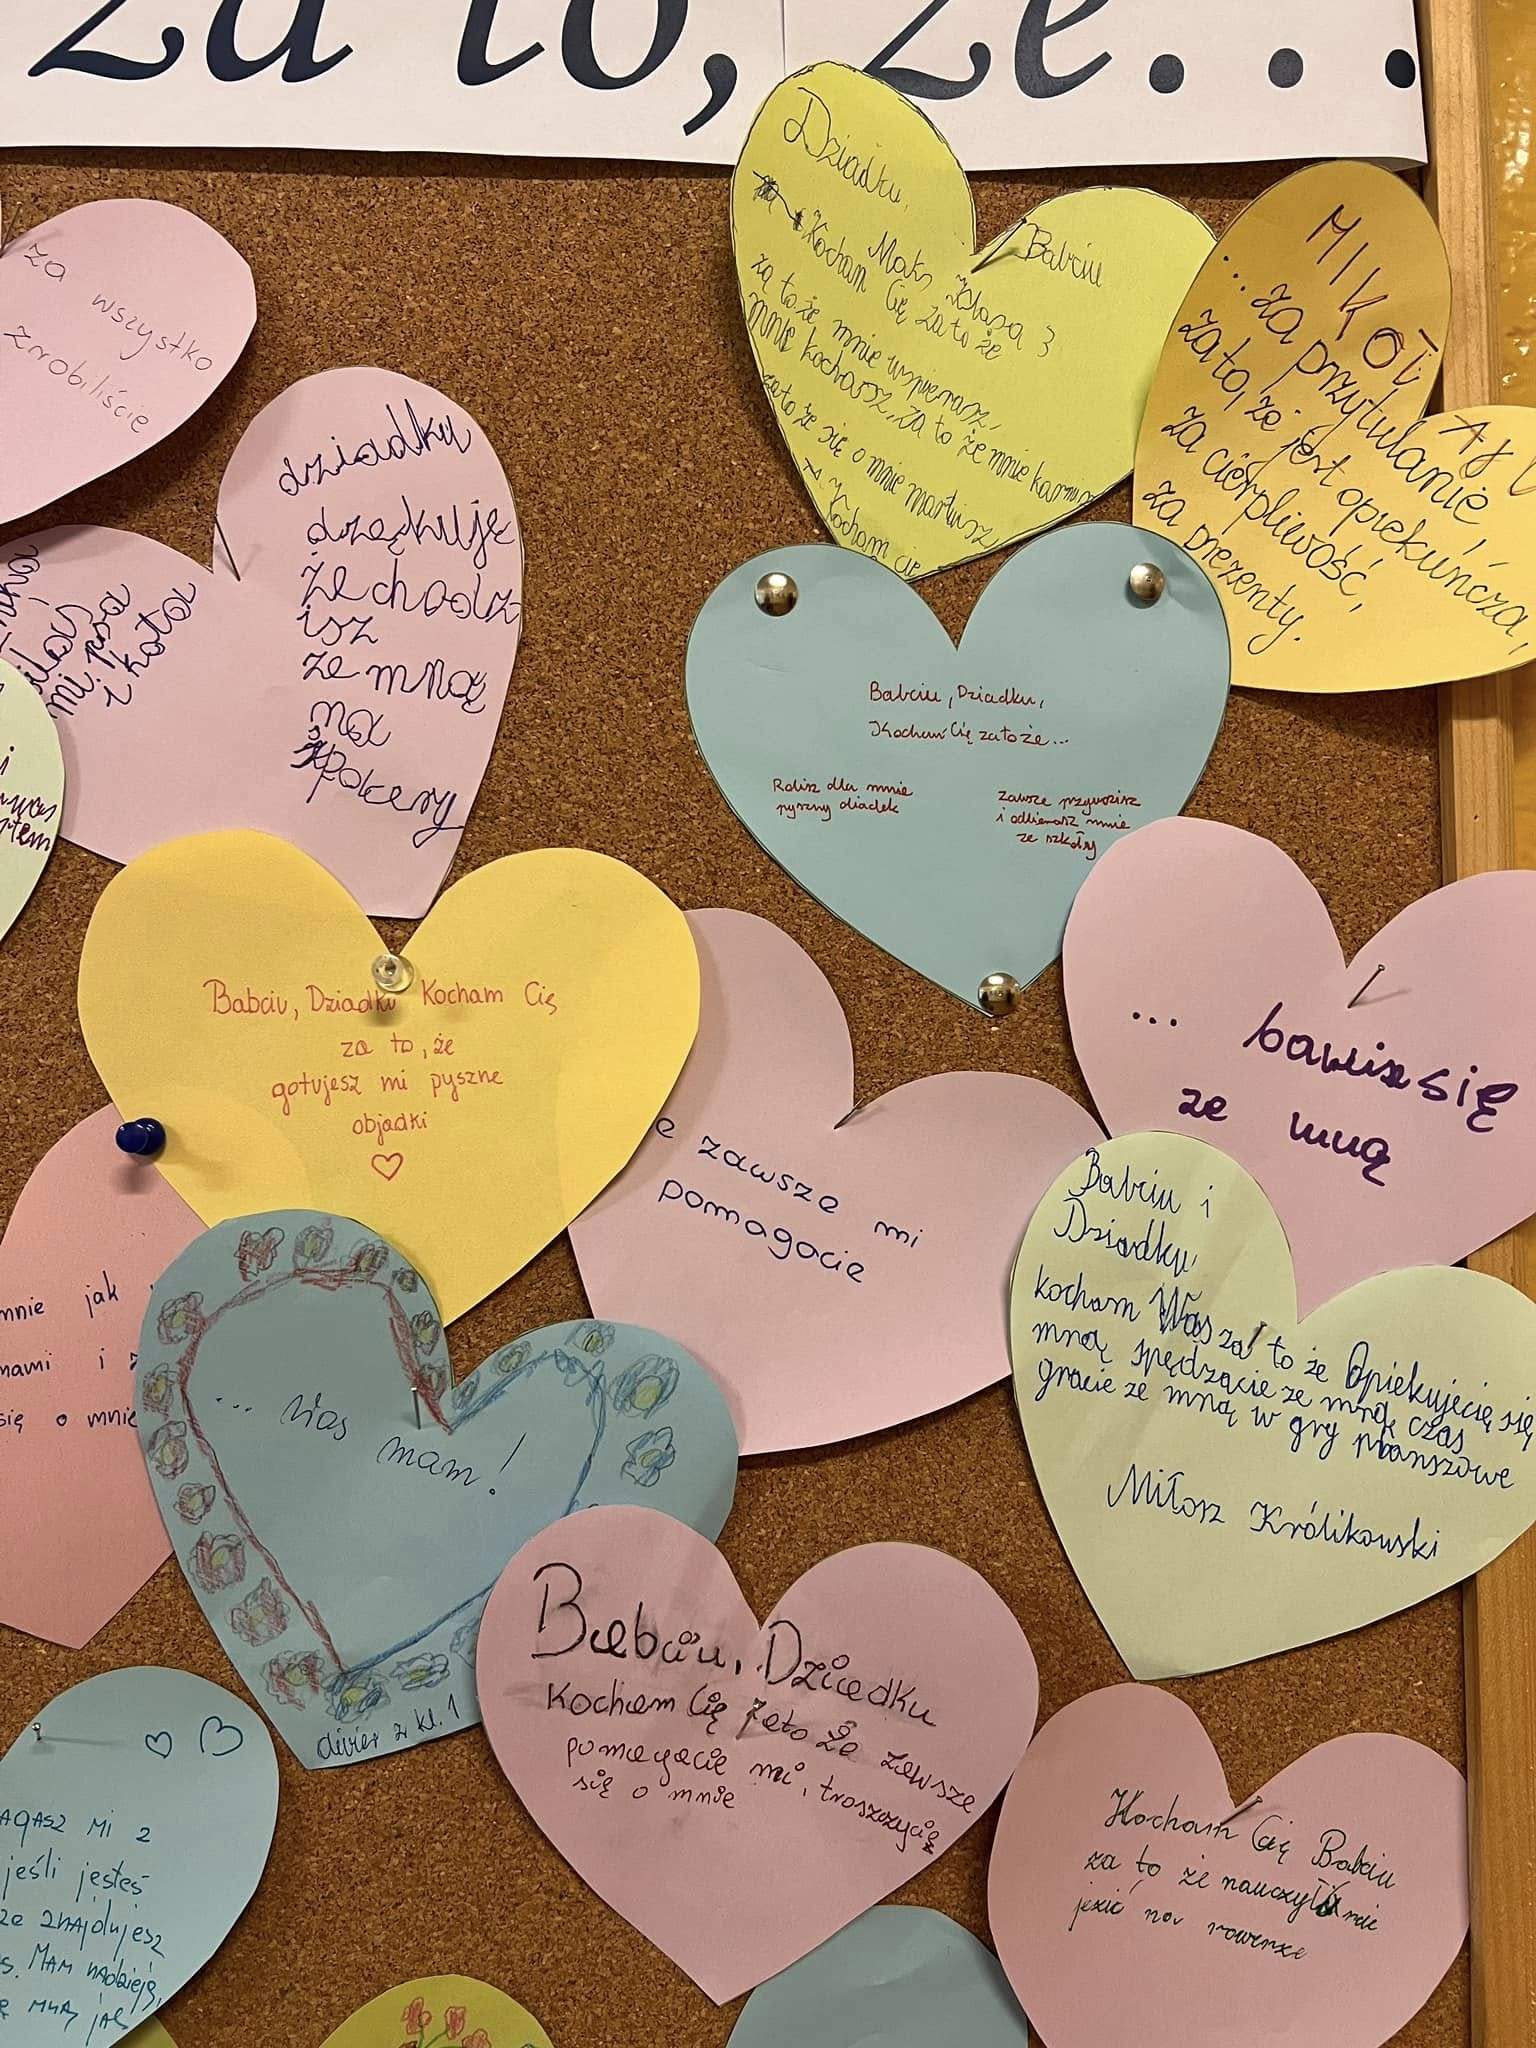 za to, że...
Dziadku,
Babciu
Maks Klasa 3
Kocham Cię za to że
za to że mnie wspierasz,
mnie kochasz, za to że mnie karmisz
za to że się o mnie martwisz
Kocham cię
MIKOŁAJ
...za przytulanie
za to, że jest opiekuńcza,
za cierpliwość,
za prezenty.
za wszystko
zrobiliście
dziadku
dzękuję
że chodz
isz
ze mną
na
spacery
mi psa
i kota
Babciu, Dziadku,
Kocham Cię za to że...
Robisz dla mnie
pyszny obiadek
Zawsze przywozisz
i odbierasz mnie
ze szkoły
Babciu, Dziadku Kocham Cię
za to, że
gotujesz mi pyszne
objadki
e zawsze mi
pomagacie
... bawisz się
ze mną
Babciu i
Dziadku,
kocham Was za to że Opiekujecię się
mną spędzacie ze mną czas
gracie ze mną w gry planszowe
Miłosz Królikowski
mnie jak
mami i
się o mnie
... Was mam!
z kl. 1
Babciu, Dziadku
Kocham Cię zato że zawsze
pomagacie mi, troszczycię
się o mnie
Kocham Cię Babciu
za to że nauczyłaś mie
jezić na rowerze
AGASZ MI Z
jeśli jesteś
ze znajdujesz
s. MAM NADZIEJĘ,